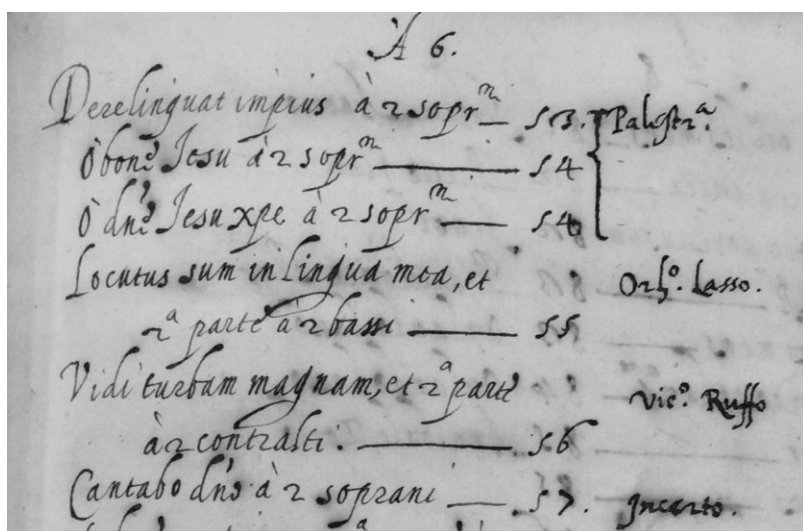 À 6.
Derelinquat impius à 2 sopr.ni 53. Palestr.a
Ò bone Jesu à 2 sopr.ni 54
Ò dne Jesu xpe à 2 sopr.ni 54
Locutus sum in lingua mea, et Orl.o Lasso.
2.a parte à 2 bassi 55
Vidi turbam magnam, et 2.a parte Vic.o Ruffo
à 2 contralti. 56
Cantabo dno à 2 soprani 57. Incerto.